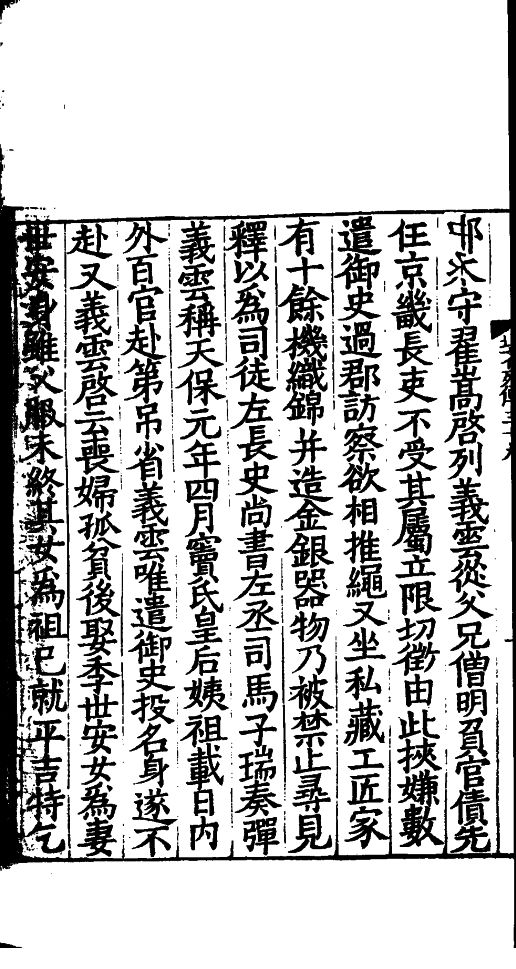 太守翟嵩啓列義雲從父兄僧明負官債先
任京畿長吏不受其屬立限切徵由此挾嫌數
遣御史過郡訪察欲相推繩又坐私藏工匠家
有十餘機織錦并造金銀器物乃被禁止尋見
釋以為司徒左長史尚書左丞司馬子瑞奏彈
義雲稱天保元年四月竇氏皇后姨祖載日內
外百官赴第吊省義雲唯遣御史投名身遂不
赴又義雲啓云喪婦孤貧後娶李世安女為妻
世安身雖父服未終其女為祖已就平吉特乞